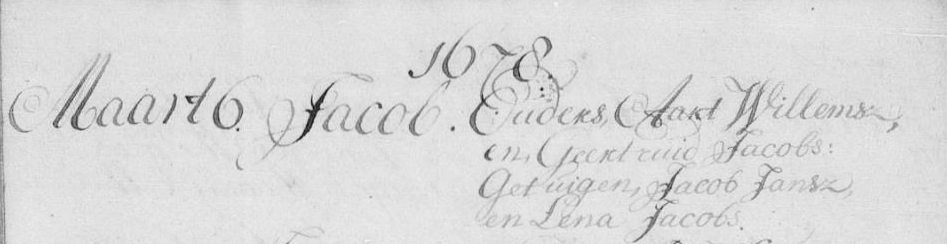 1678.
Maart 6. Jacob. Ouders, Aart Willemsz,
en, Geertruid Jacobs:
Getuigen, Jacob Jansz,
en Lena Jacobs.